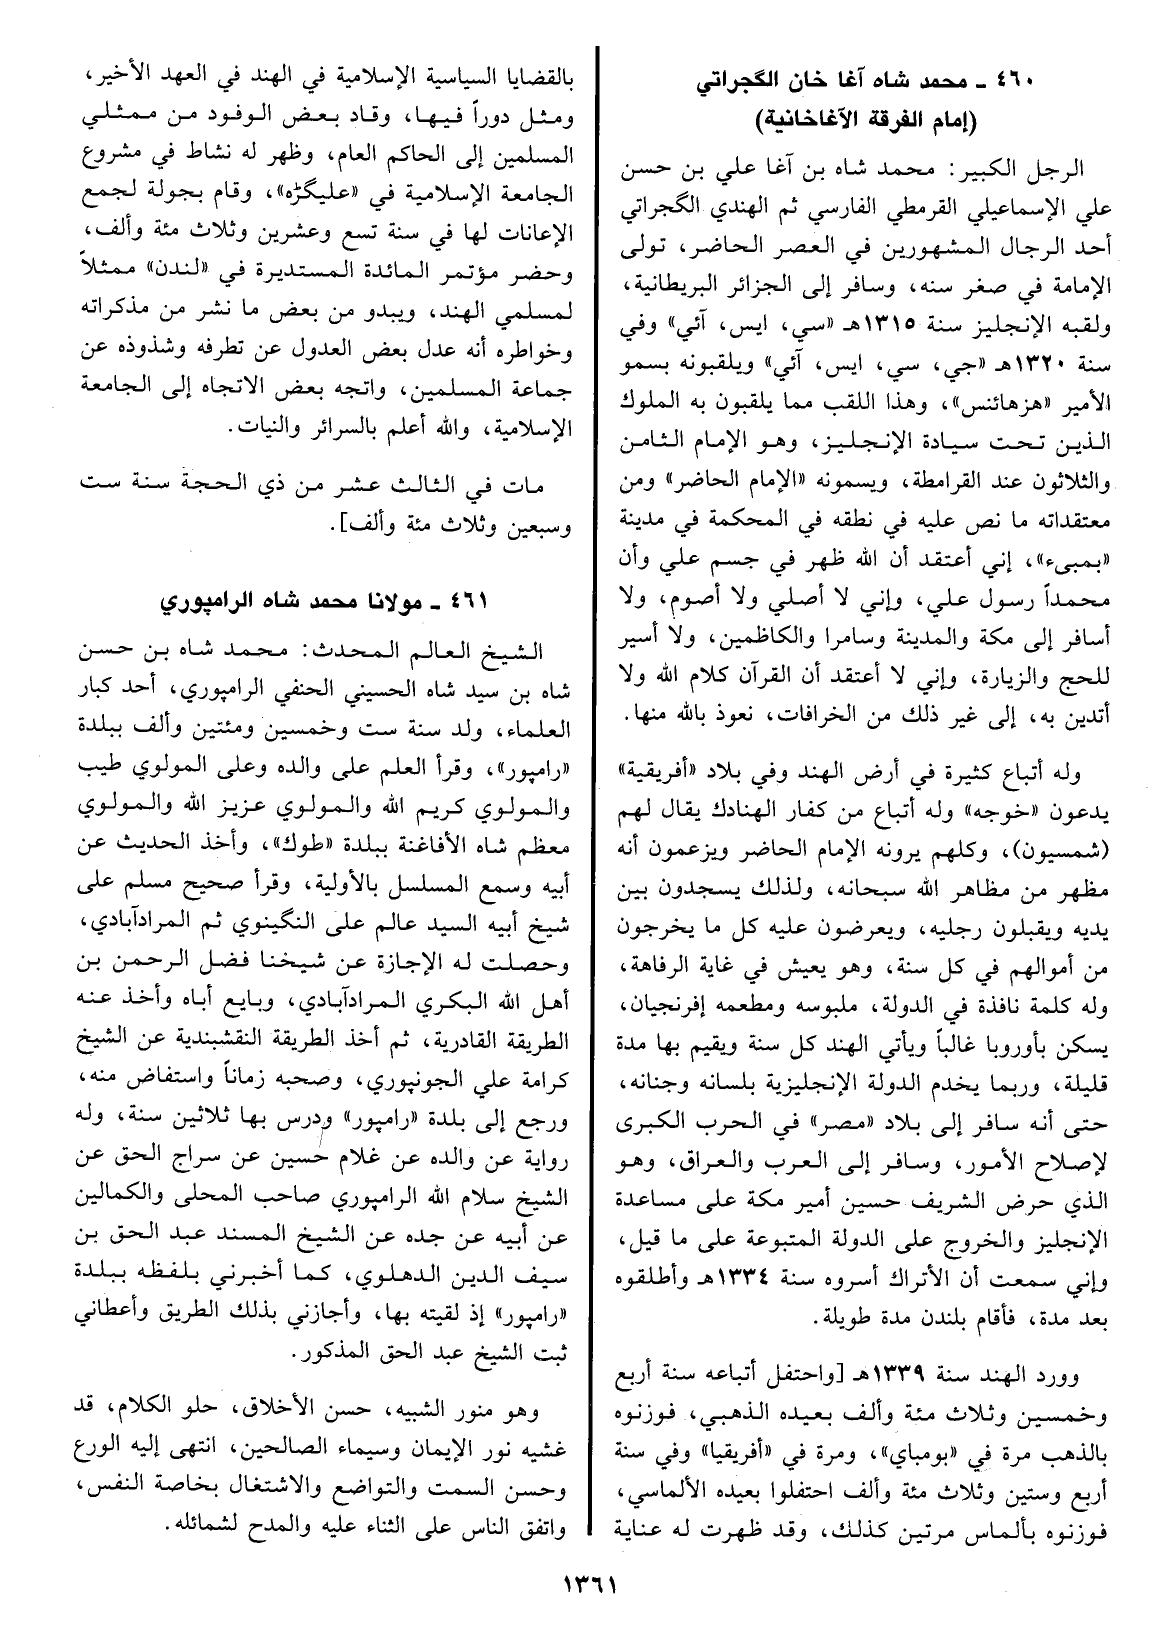 ٤٦٠ ـ محمد شاه آغا خان الگجراتي
(إمام الفرقة الآغاخانية)
الرجل الكبير: محمد شاه بن آغا علي بن حسن
علي الإسماعيلي القرمطي الفارسي ثم الهندي الگجراتي
أحد الرجال المشهورين في العصر الحاضر، تولى
الإمامة في صغر سنه، وسافر إلى الجزائر البريطانية،
ولقبه الإنجليز سنة ١٣١٥هـ «سي، ايس، آئي» وفي
سنة ١٣٢٠هـ «جي، سي، ايس، آئي» ويلقبونه بسمو
الأمير «هزهائنس»، وهذا اللقب مما يلقبون به الملوك
الذين تحت سيادة الإنجليز، وهو الإمام الثامن
والثلاثون عند القرامطة، ويسمونه «الإمام الحاضر» ومن
معتقداته ما نص عليه في نطقه في المحكمة في مدينة
«بمبىء»، إني أعتقد أن الله ظهر في جسم علي وأن
محمداً رسول علي، وإني لا أصلي ولا أصوم، ولا
أسافر إلى مكة والمدينة وسامرا والكاظمين، ولا أسير
للحج والزيارة، وإني لا أعتقد أن القرآن كلام الله ولا
أتدين به، إلى غير ذلك من الخرافات، نعوذ بالله منها.
وله أتباع كثيرة في أرض الهند وفي بلاد «أفريقية»
يدعون «خوجه» وله أتباع من كفار الهنادك يقال لهم
(شمسيون)، وكلهم يرونه الإمام الحاضر ويزعمون أنه
مظهر من مظاهر الله سبحانه، ولذلك يسجدون بين
يديه ويقبلون رجليه، ويعرضون عليه كل ما يخرجون
من أموالهم في كل سنة، وهو يعيش في غاية الرفاهة،
وله كلمة نافذة في الدولة، ملبوسه ومطعمه إفرنجيان،
يسكن بأوروبا غالباً ويأتي الهند كل سنة ويقيم بها مدة
قليلة، وربما يخدم الدولة الإنجليزية بلسانه وجنانه،
حتى أنه سافر إلى بلاد «مصر» في الحرب الكبرى
لإصلاح الأمور، وسافر إلى العرب والعراق، وهو
الذي حرض الشريف حسين أمير مكة على مساعدة
الإنجليز والخروج على الدولة المتبوعة على ما قيل،
وإني سمعت أن الأتراك أسروه سنة ١٣٣٤هـ وأطلقوه
بعد مدة، فأقام بلندن مدة طويلة.
وورد الهند سنة ١٣٣٩هـ [واحتفل أتباعه سنة أربع
وخمسين وثلاث مئة وألف بعيده الذهبي، فوزنوه
بالذهب مرة في «بومباي»، ومرة في «أفريقيا» وفي سنة
أربع وستين وثلاث مئة وألف احتفلوا بعيده الألماسي،
فوزنوه بألماس مرتين كذلك، وقد ظهرت له عناية
بالقضايا السياسية الإسلامية في الهند في العهد الأخير،
ومثل دوراً فيها، وقاد بعض الوفود من ممثلي
المسلمين إلى الحاكم العام، وظهر له نشاط في مشروع
الجامعة الإسلامية في «عليگڑه»، وقام بجولة لجمع
الإعانات لها في سنة تسع وعشرين وثلاث مئة وألف،
وحضر مؤتمر المائدة المستديرة في «لندن» ممثلاً
لمسلمي الهند، ويبدو من بعض ما نشر من مذكراته
وخواطره أنه عدل بعض العدول عن تطرفه وشذوذه عن
جماعة المسلمين، واتجه بعض الاتجاه إلى الجامعة
الإسلامية، والله أعلم بالسرائر والنيات.
مات في الثالث عشر من ذي الحجة سنة ست
وسبعين وثلاث مئة وألف].
٤٦١ ـ مولانا محمد شاه الرامپوري
الشيخ العالم المحدث: محمد شاه بن حسن
شاه بن سيد شاه الحسيني الحنفي الرامپوري، أحد كبار
العلماء، ولد سنة ست وخمسين ومئتين وألف ببلدة
«رامپور»، وقرأ العلم على والده وعلى المولوي طيب
والمولوي كريم الله والمولوي عزيز الله والمولوي
معظم شاه الأفاغنة ببلدة «طوك»، وأخذ الحديث عن
أبيه وسمع المسلسل بالأولية، وقرأ صحيح مسلم على
شيخ أبيه السيد عالم على النگينوي ثم المرادآبادي،
وحصلت له الإجازة عن شيخنا فضل الرحمن بن
أهل الله البكري المرادآبادي، وبايع أباه وأخذ عنه
الطريقة القادرية، ثم أخذ الطريقة النقشبندية عن الشيخ
كرامة علي الجونپوري، وصحبه زماناً واستفاض منه،
ورجع إلى بلدة «رامپور» ودرس بها ثلاثين سنة، وله
رواية عن والده عن غلام حسين عن سراج الحق عن
الشيخ سلام الله الرامپوري صاحب المحلى والكمالين
عن أبيه عن جده عن الشيخ المسند عبد الحق بن
سيف الدين الدهلوي، كما أخبرني بلفظه ببلدة
«رامپور» إذ لقيته بها، وأجازني بذلك الطريق وأعطاني
ثبت الشيخ عبد الحق المذكور.
وهو منور الشبيه، حسن الأخلاق، حلو الكلام، قد
غشيه نور الإيمان وسيماء الصالحين، انتهى إليه الورع
وحسن السمت والتواضع والاشتغال بخاصة النفس،
واتفق الناس على الثناء عليه والمدح لشمائله.
١٣٦١